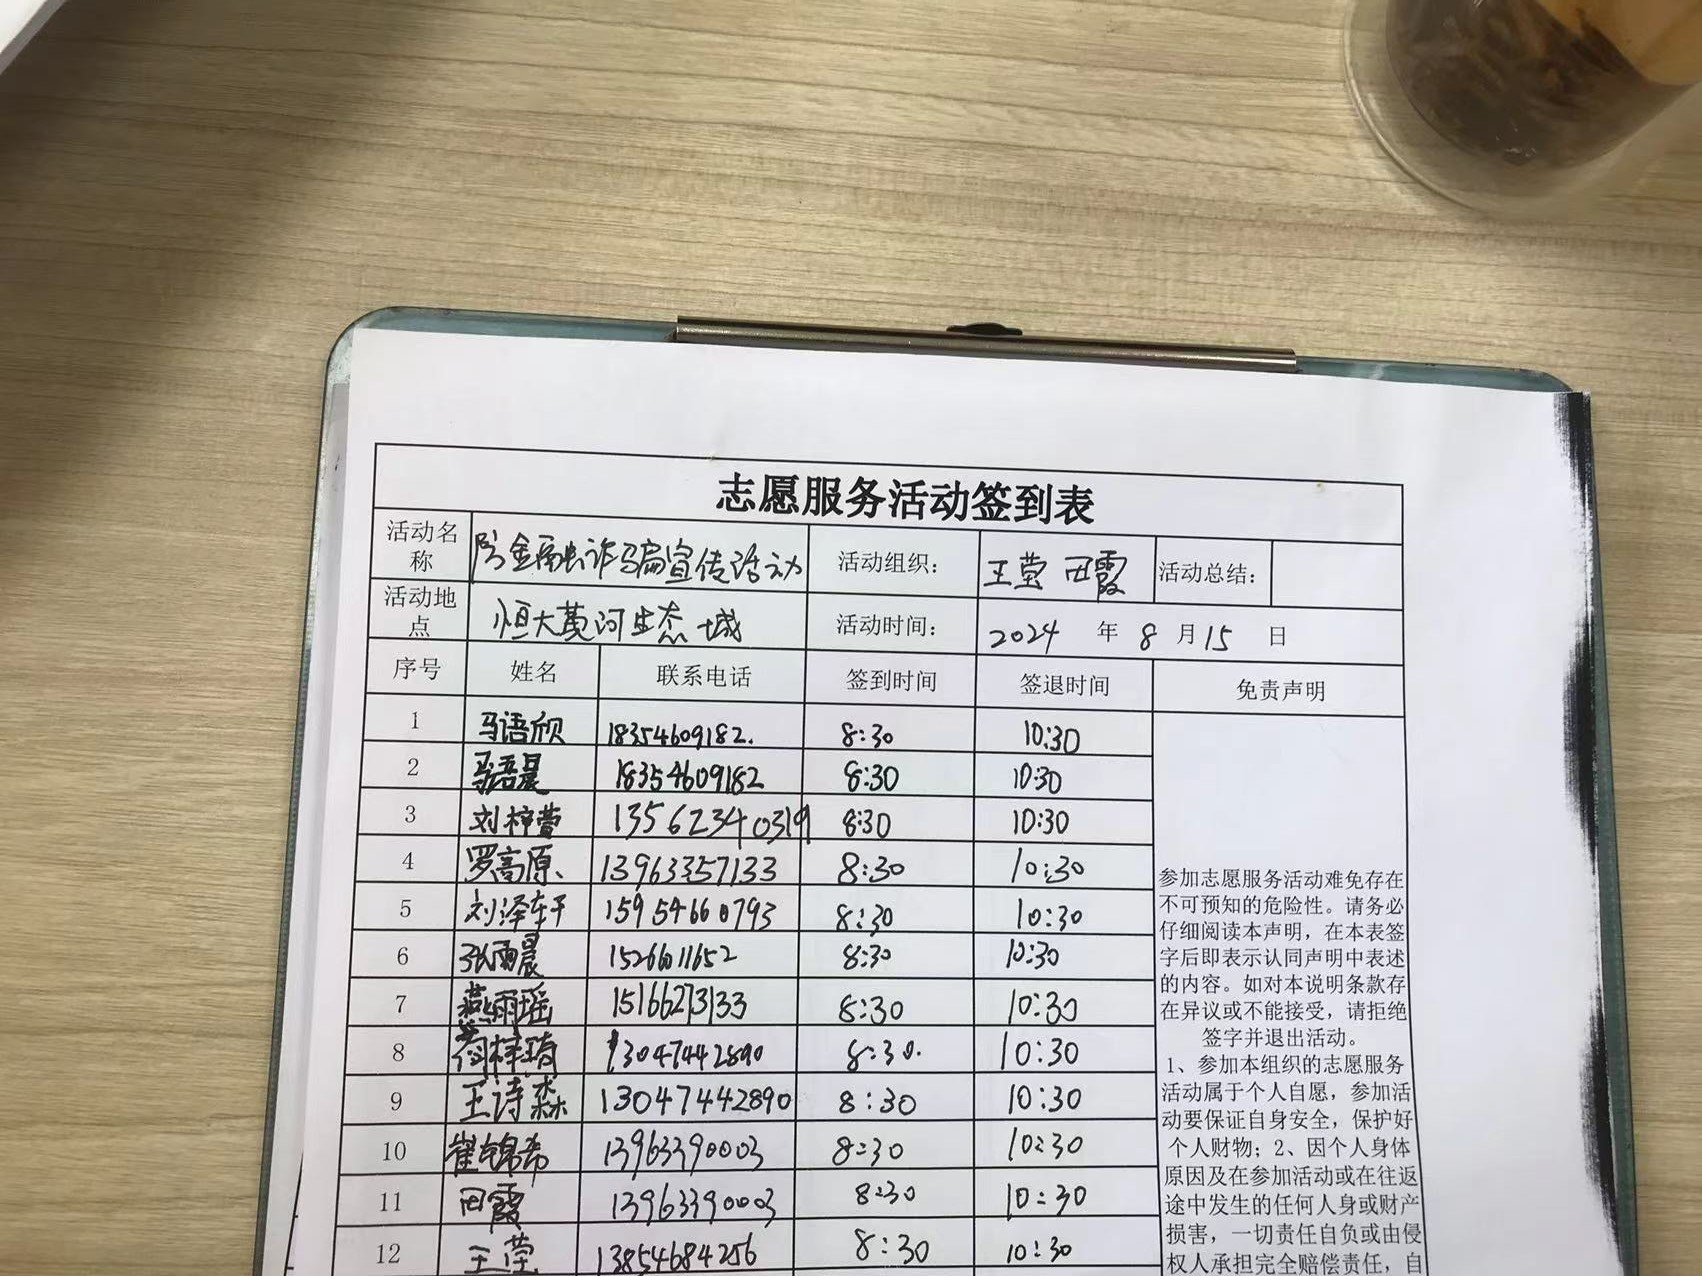 志愿服务活动签到表
活动名称 防金融诈骗宣传活动 活动组织： 王莹 田霞 活动总结：
活动地点 恒大黄河生态城 活动时间： 2024 年 8 月 15 日
序号 姓名 联系电话 签到时间 签退时间 免责声明
1 马语欣 18354609182. 8:30 10:30
2 马语晨 18354609182 8:30 10:30
3 刘梓萱 13562340319 8:30 10:30
4 罗高原 13963357133 8:30 10:30
5 刘泽轩 15954660793 8:30 10:30
6 张雨晨 15266011652 8:30 10:30
7 燕雨瑶 15166273133 8:30 10:30
8 梓琦 13047442890 8:30. 10:30
9 王诗淼 13047442890 8:30 10:30
10 崔锦希 13963390003 8:30 10:30
11 田霞 13963390003 8:30 10:30
12 王莹 13854684256 8:30 10:30
参加志愿服务活动难免存在
不可预知的危险性。请务必
仔细阅读本声明，在本表签
字后即表示认同声明中表述
的内容。如对本说明条款存
在异议或不能接受，请拒绝
签字并退出活动。
1、参加本组织的志愿服务
活动属于个人自愿，参加活
动要保证自身安全，保护好
个人财物；2、因个人身体
原因及在参加活动或在往返
途中发生的任何人身或财产
损害，一切责任自负或由侵
权人承担完全赔偿责任，自